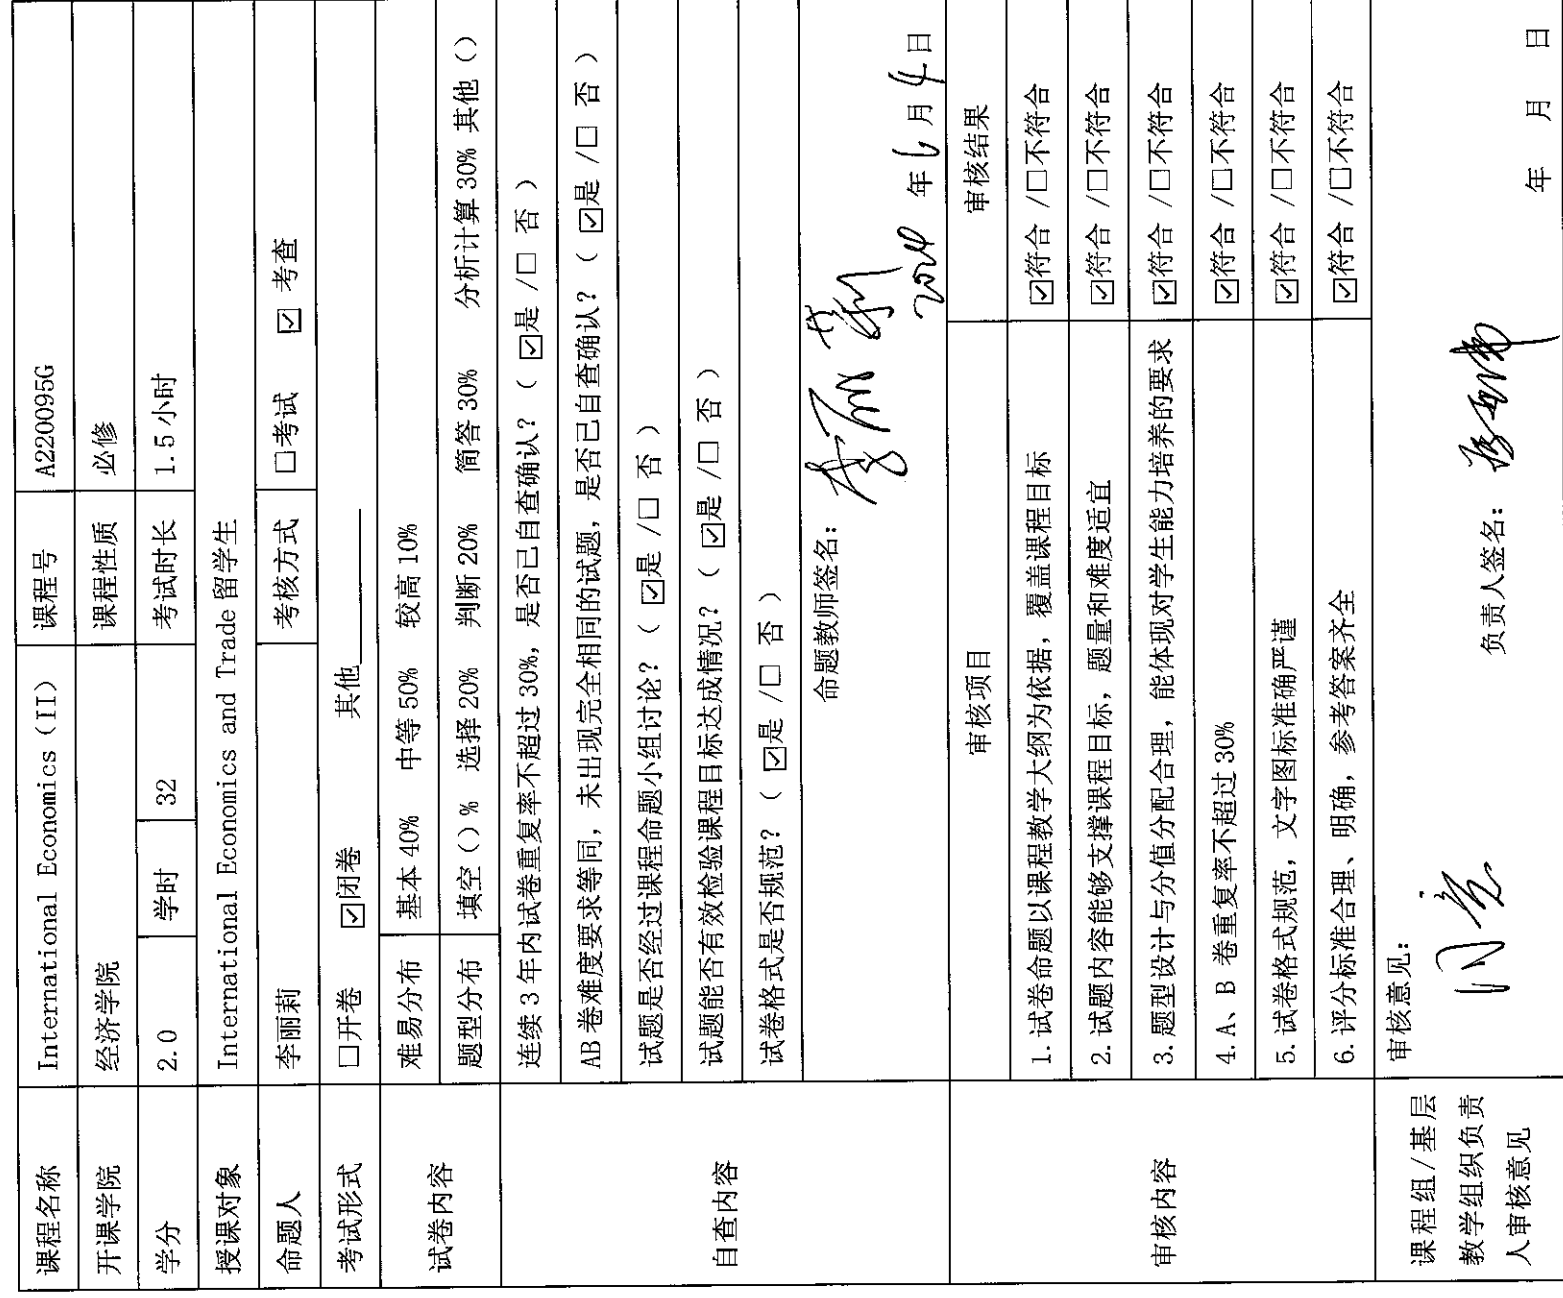 课程名称 International Economics (II) 课程号 A220095G
开课学院 经济学院 课程性质 必修
学分 2.0 学时 32 考试时长 1.5 小时
授课对象 International Economics and Trade 留学生
命题人 李丽莉 考核方式 □考试 ☑ 考查
考试形式 □开卷 ☑闭卷 其他
试卷内容 难易分布 基本 40% 中等 50% 较高 10%
题型分布 填空（）% 选择 20% 判断 20% 简答 30% 分析计算 30% 其他（）
自查内容
连续 3 年内试卷重复率不超过 30%，是否已自查确认？（ ☑是 /□ 否 ）
AB 卷难度要求等同，未出现完全相同的试题，是否已自查确认？（ ☑是 /□ 否 ）
试题是否经过课程命题小组讨论？（ ☑是 /□ 否 ）
试题能否有效检验课程目标达成情况？（ ☑是 /□ 否 ）
试卷格式是否规范？（ ☑是 /□ 否 ）
命题教师签名：李丽莉
2024 年 6 月 4 日
审核内容
审核项目 审核结果
1. 试卷命题以课程教学大纲为依据，覆盖课程目标 ☑符合 /□不符合
2. 试题内容能够支撑课程目标，题量和难度适宜 ☑符合 /□不符合
3. 题型设计与分值分配合理，能体现对学生能力培养的要求 ☑符合 /□不符合
4. A、B 卷重复率不超过 30% ☑符合 /□不符合
5. 试卷格式规范，文字图标准确严谨 ☑符合 /□不符合
6. 评分标准合理、明确，参考答案齐全 ☑符合 /□不符合
课程组/基层
教学组织负责
人审核意见
审核意见：
同意
负责人签名：
年 月 日